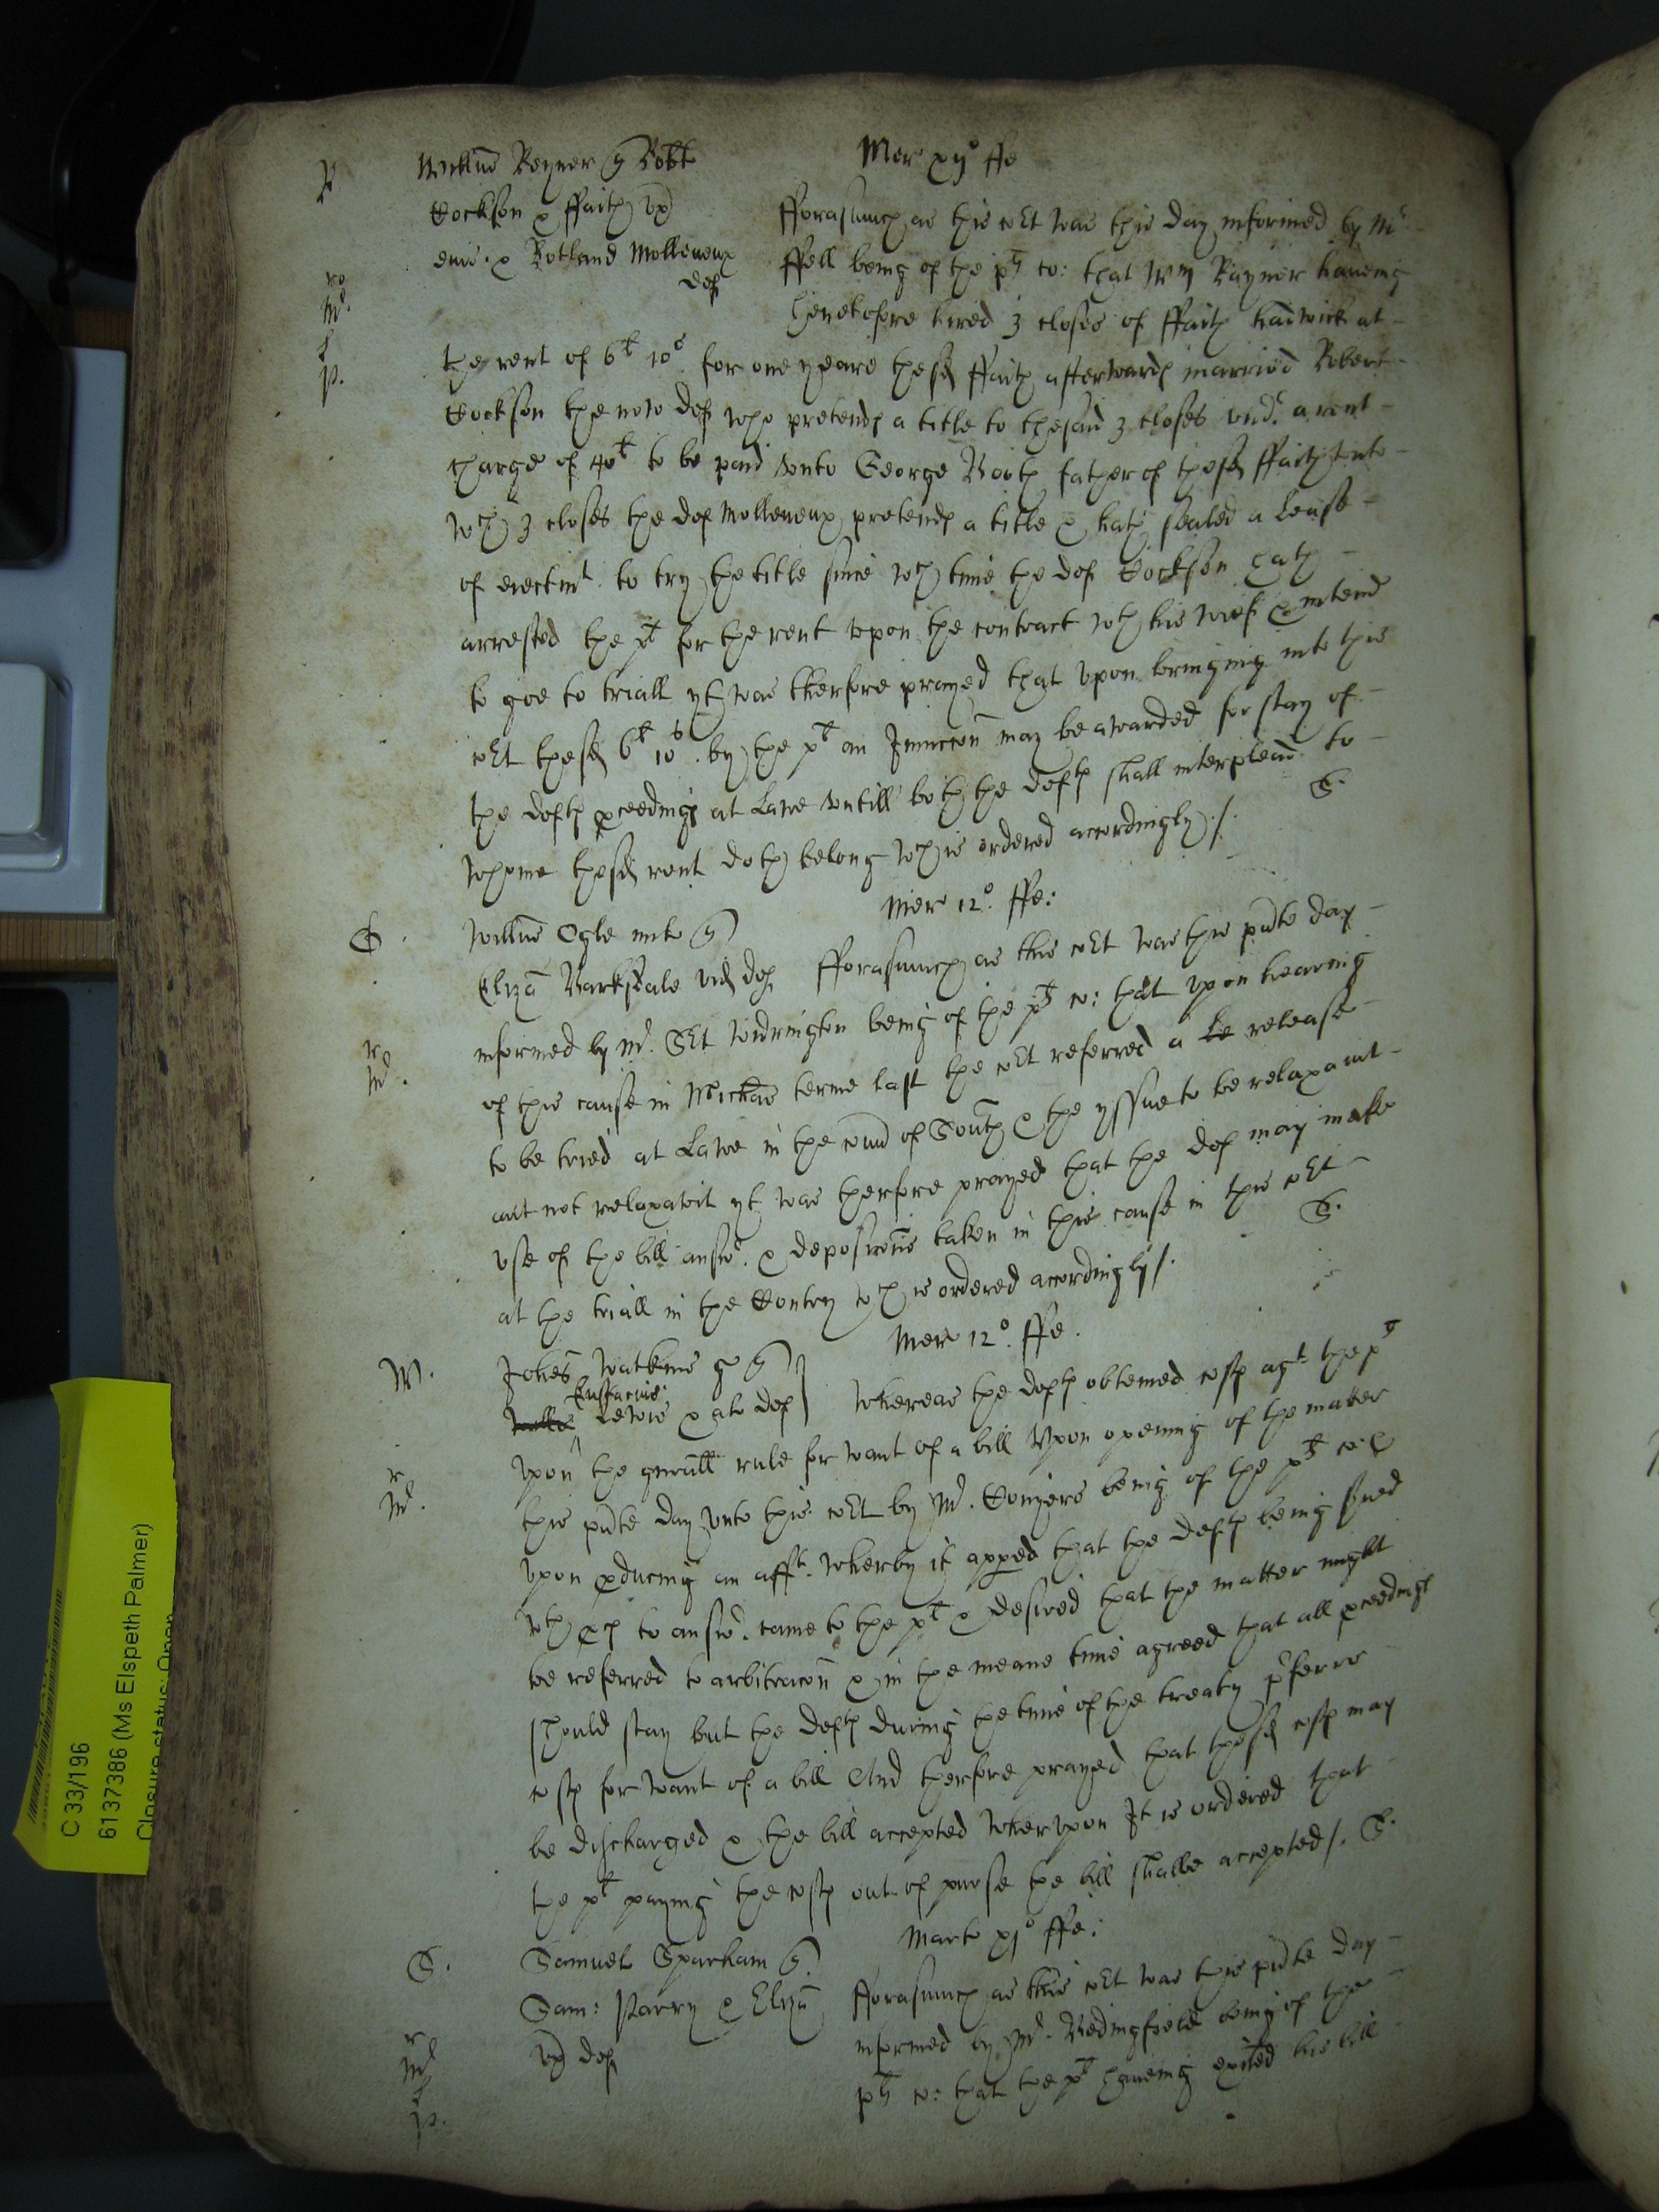 Mer xijo ffe
R Willus Rayner q Robt
Cockson & ffaith ux
eius & Rotland Molleneux
def
fforasmuch as this Court was this day informed by Mr
ffell being of the plts co: that Wm Rayner haveing
heretofore hired 3 closes of ffaith at
the rent of 6l 10s for one yeare the sd ffaith afterwards married Robert
Cockson the now def who pretends a title to the said 3 closes undr a rent
charge of 40l to be paid unto George Booth father of the sd ffaith
wch 3 closes the def Molleneux pretends a title & hath sealed a Lease
of eiectmt to try the title since wch time the def Cockson hath
arrested the plt for the rent upon the contract wth his wief & intend
to goe to triall yt was therfore prayed that upon bringing into this
Court the sd 6l 10s by the plt an Iniuccon may be awarded for stay of
the defts pceedings at Lawe untill both the defts shall interplead to
whome the sd rent doth belong wch is ordered accordingly /. S.
Mer 12o ffe:
O Willus Ogle q
Eliza Barksdale vid def fforasmuch as this Court was this pnte day
informed by Mr Sct Widrington being of the plts co: that upon hearing
of this cause in Michas terme last the Court referred a release
to be tried at Lawe in the of South & the yssue to be relaxavit
aut not relaxavit yt was therfore prayed that the def may make
use of the bill answr & deposicons taken in this cause in this Court
at the triall in the Contry wch is ordered accordingly /. S.
Mer 12o ffe.
W. Johes Watkins q
Eustacius
Lewis & al def Whereas the defts obteined costs agt the plt
upon the gnrall rule for want of a bill Upon opening of the matter
this pnte day unto this Court by Mr Conyers being of the plts
upon pducing an afft wherby it appred that the defts being srved
wth pces to answr came to the plt & desired that the matter might
be referred to arbitracon & in the meane time agreed that all pceedings
should stay but the defts during the time of the treaty
costs for want of a bill And therfore prayed that the sd costs may
be discharged & the bill accepted Wherupon It is ordered that
the plt paying the costs out of purse the bill shalbe accepted /. S.
Marts xjo ffe:
S. Samuel Sparham q
Sam: Parry & Eliza
ux def
fforasmuch as this Court was this pnte day
informed by Mr Bedingfield being of the
plts co: that the plt haveing exited his bill
C 33/196
6137386 (Ms Elspeth Palmer)
Closure status: Open